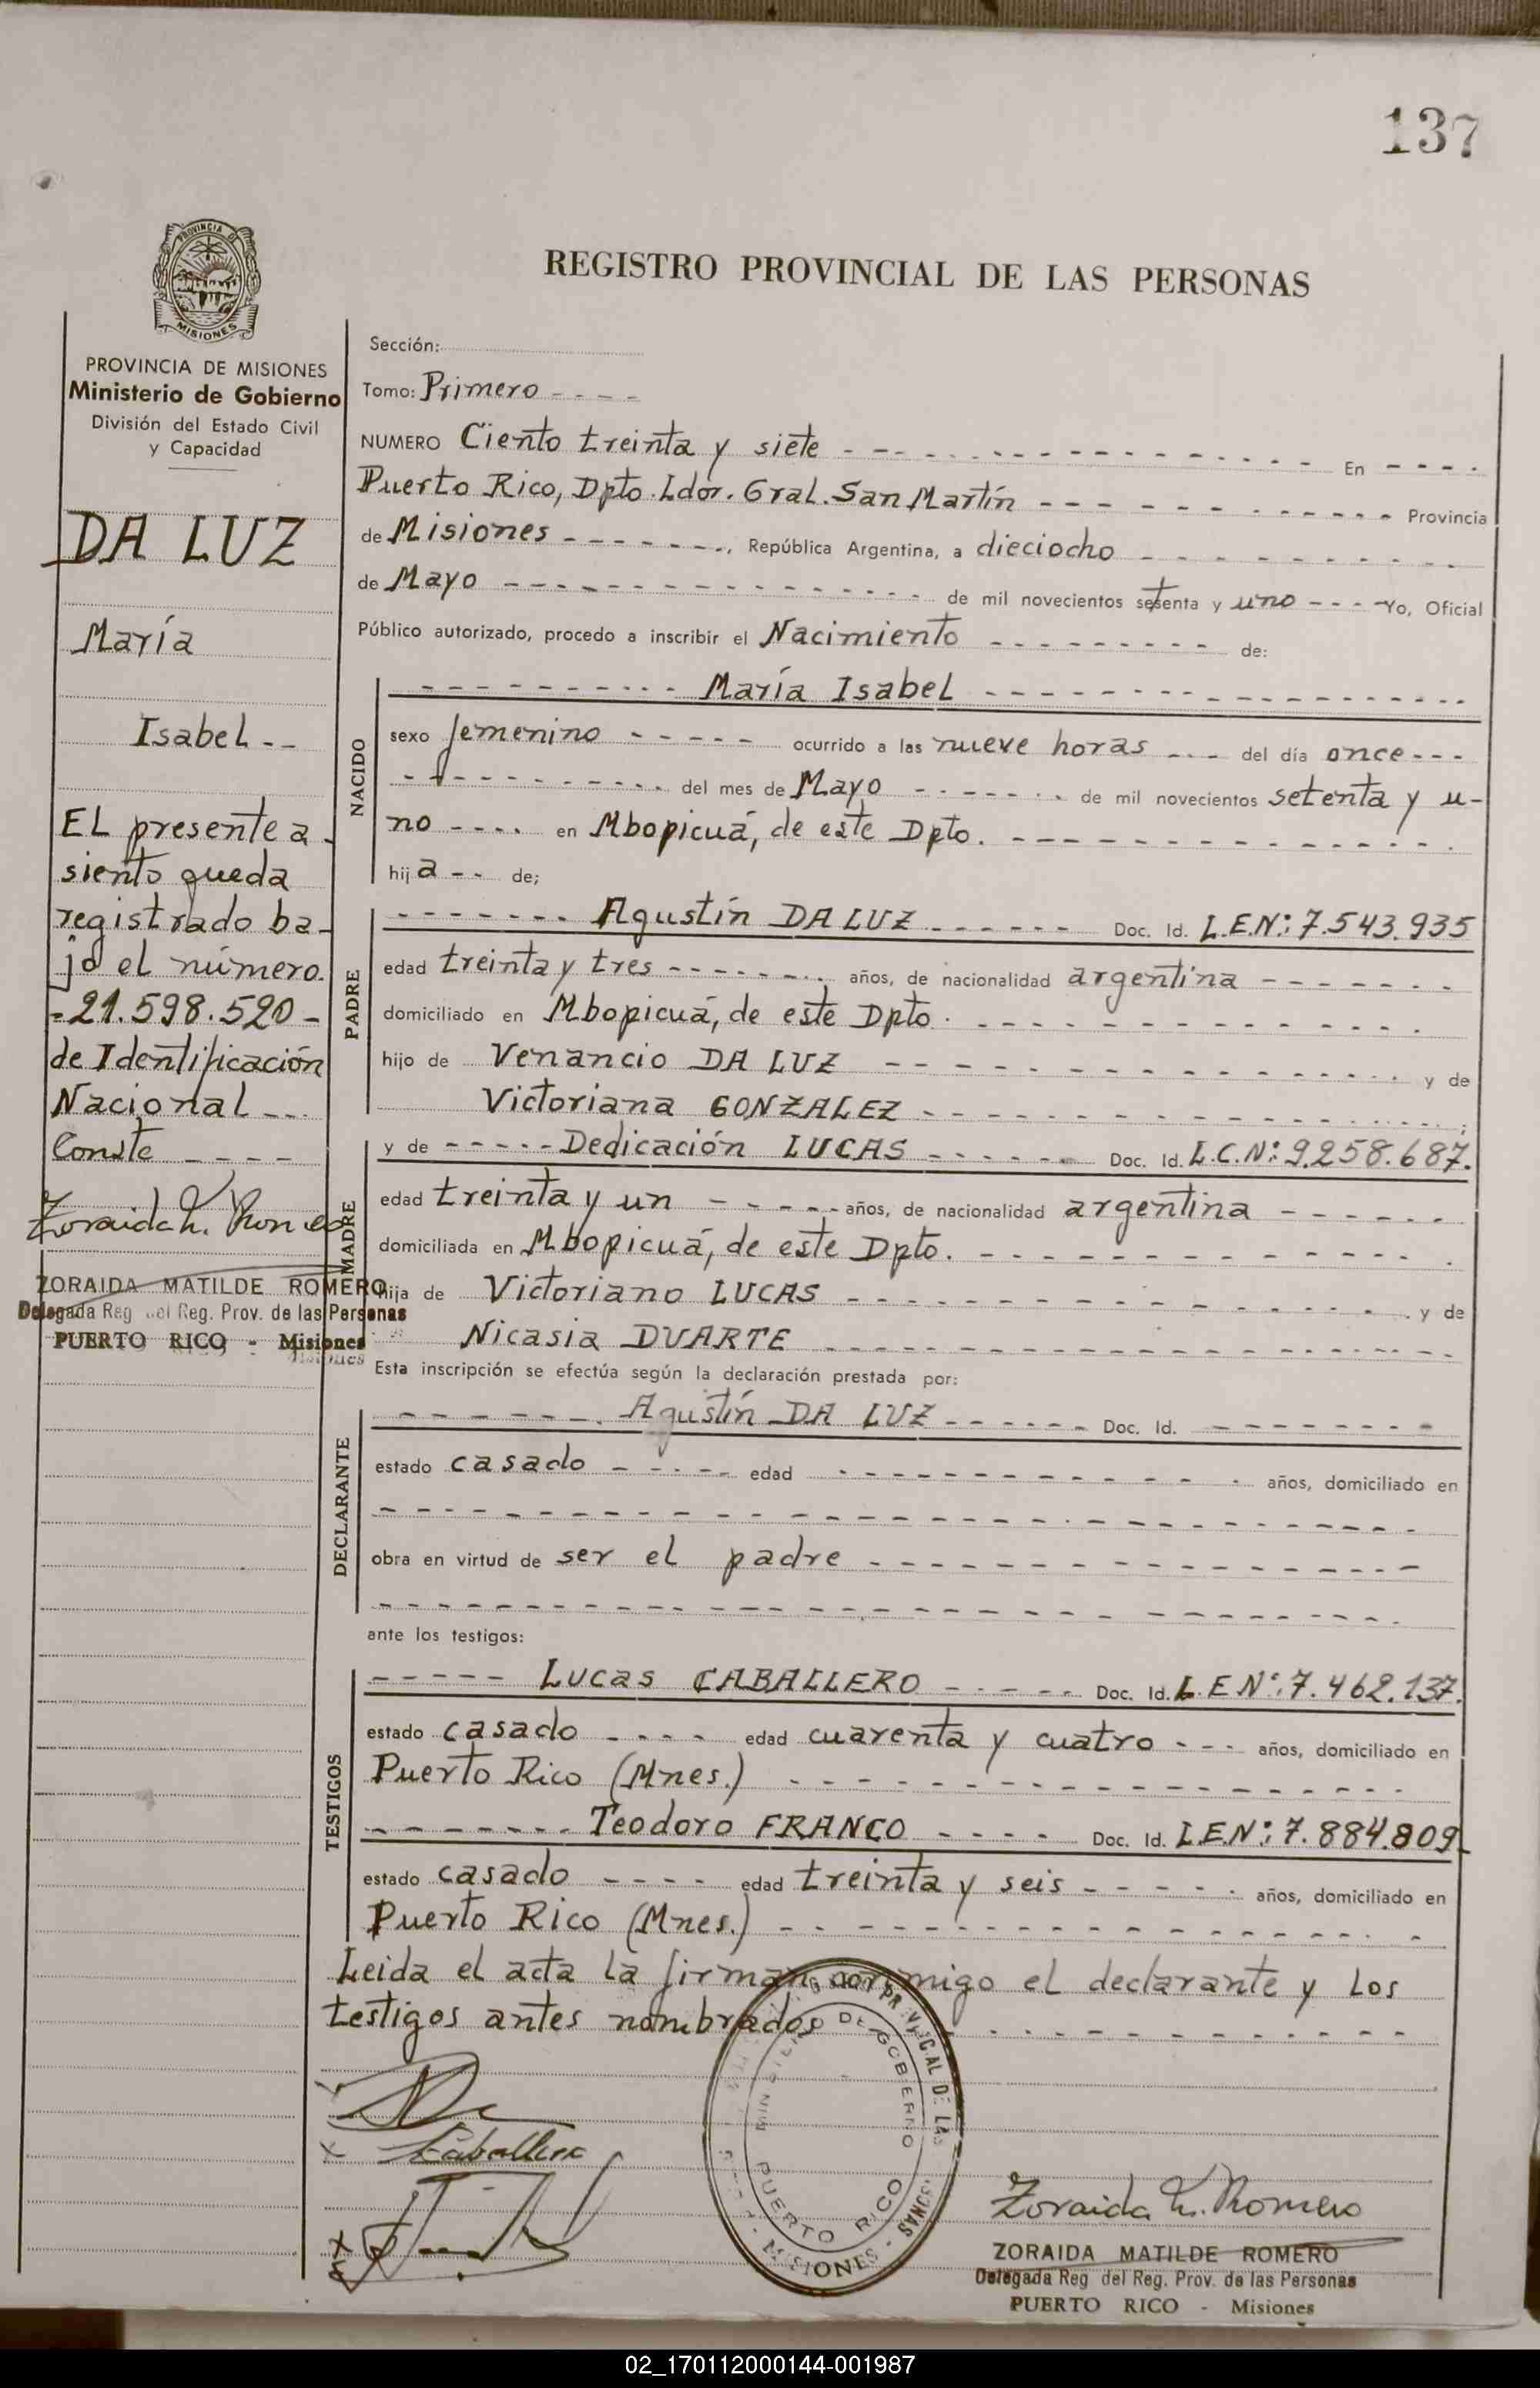 137
REGISTRO PROVINCIAL DE LAS PERSONAS
PROVINCIA DE MISIONES
Ministerio de Gobierno
División del Estado Civil
y Capacidad
DA LUZ
María
Isabel --
El presente a-
siento queda
registrado ba-
jo el número
=21.598.520-
de Identificación
Nacional ---
Conste ----
Zoraida M. Romero
ZORAIDA MATILDE ROMERO
Delegada Reg del Reg. Prov. de las Personas
PUERTO RICO - Misiones
Sección:
Tomo: Primero ----
NUMERO Ciento treinta y siete ---- En ----
Puerto Rico, Dpto. Ldor. Gral. San Martín ---- Provincia
de Misiones ----, República Argentina, a dieciocho ----
de Mayo ---- de mil novecientos setenta y uno ---- Yo, Oficial
Público autorizado, procedo a inscribir el Nacimiento ---- de:
NACIDO
---- María Isabel ----
sexo femenino ---- ocurrido a las nueve horas ---- del día once ---
---- del mes de Mayo ---- de mil novecientos setenta y u-
no ---- en Mbopicuá, de este Dpto. ----
hija -- de;
PADRE
---- Agustín DA LUZ ---- Doc. Id. L.E.N: 7.543.935
edad treinta y tres ---- años, de nacionalidad argentina ----
domiciliado en Mbopicuá, de este Dpto. ----
hijo de Venancio DA LUZ ---- y de
Victoriana GONZALEZ ----;
MADRE
y de ---- Dedicación LUCAS ---- Doc. Id. L.C.N: 9.258.687.
edad treinta y un ---- años, de nacionalidad argentina ----
domiciliada en Mbopicuá, de este Dpto. ----
hija de Victoriano LUCAS ---- y de
Nicasia DUARTE ----
Esta inscripción se efectúa según la declaración prestada por:
DECLARANTE
---- Agustín DA LUZ ---- Doc. Id. ----
estado casado ---- edad ---- años, domiciliado en
----
obra en virtud de ser el padre ----
----
ante los testigos:
TESTIGOS
---- Lucas CABALLERO ---- Doc. Id. L.E N: 7.462.137.
estado casado ---- edad cuarenta y cuatro --- años, domiciliado en
Puerto Rico (Mnes.) ----
---- Teodoro FRANCO ---- Doc. Id. L.E.N: 7.884.809-
estado casado ---- edad treinta y seis ---- años, domiciliado en
Puerto Rico (Mnes.) ----
Leida el acta la firman conmigo el declarante y los
testigos antes nombrados ----
Caballero
MINISTERIO DE GOBIERNO
PUERTO RICO
MISIONES
Zoraida M. Romero
ZORAIDA MATILDE ROMERO
Delegada Reg del Reg. Prov. de las Personas
PUERTO RICO - Misiones
02_170112000144-001987